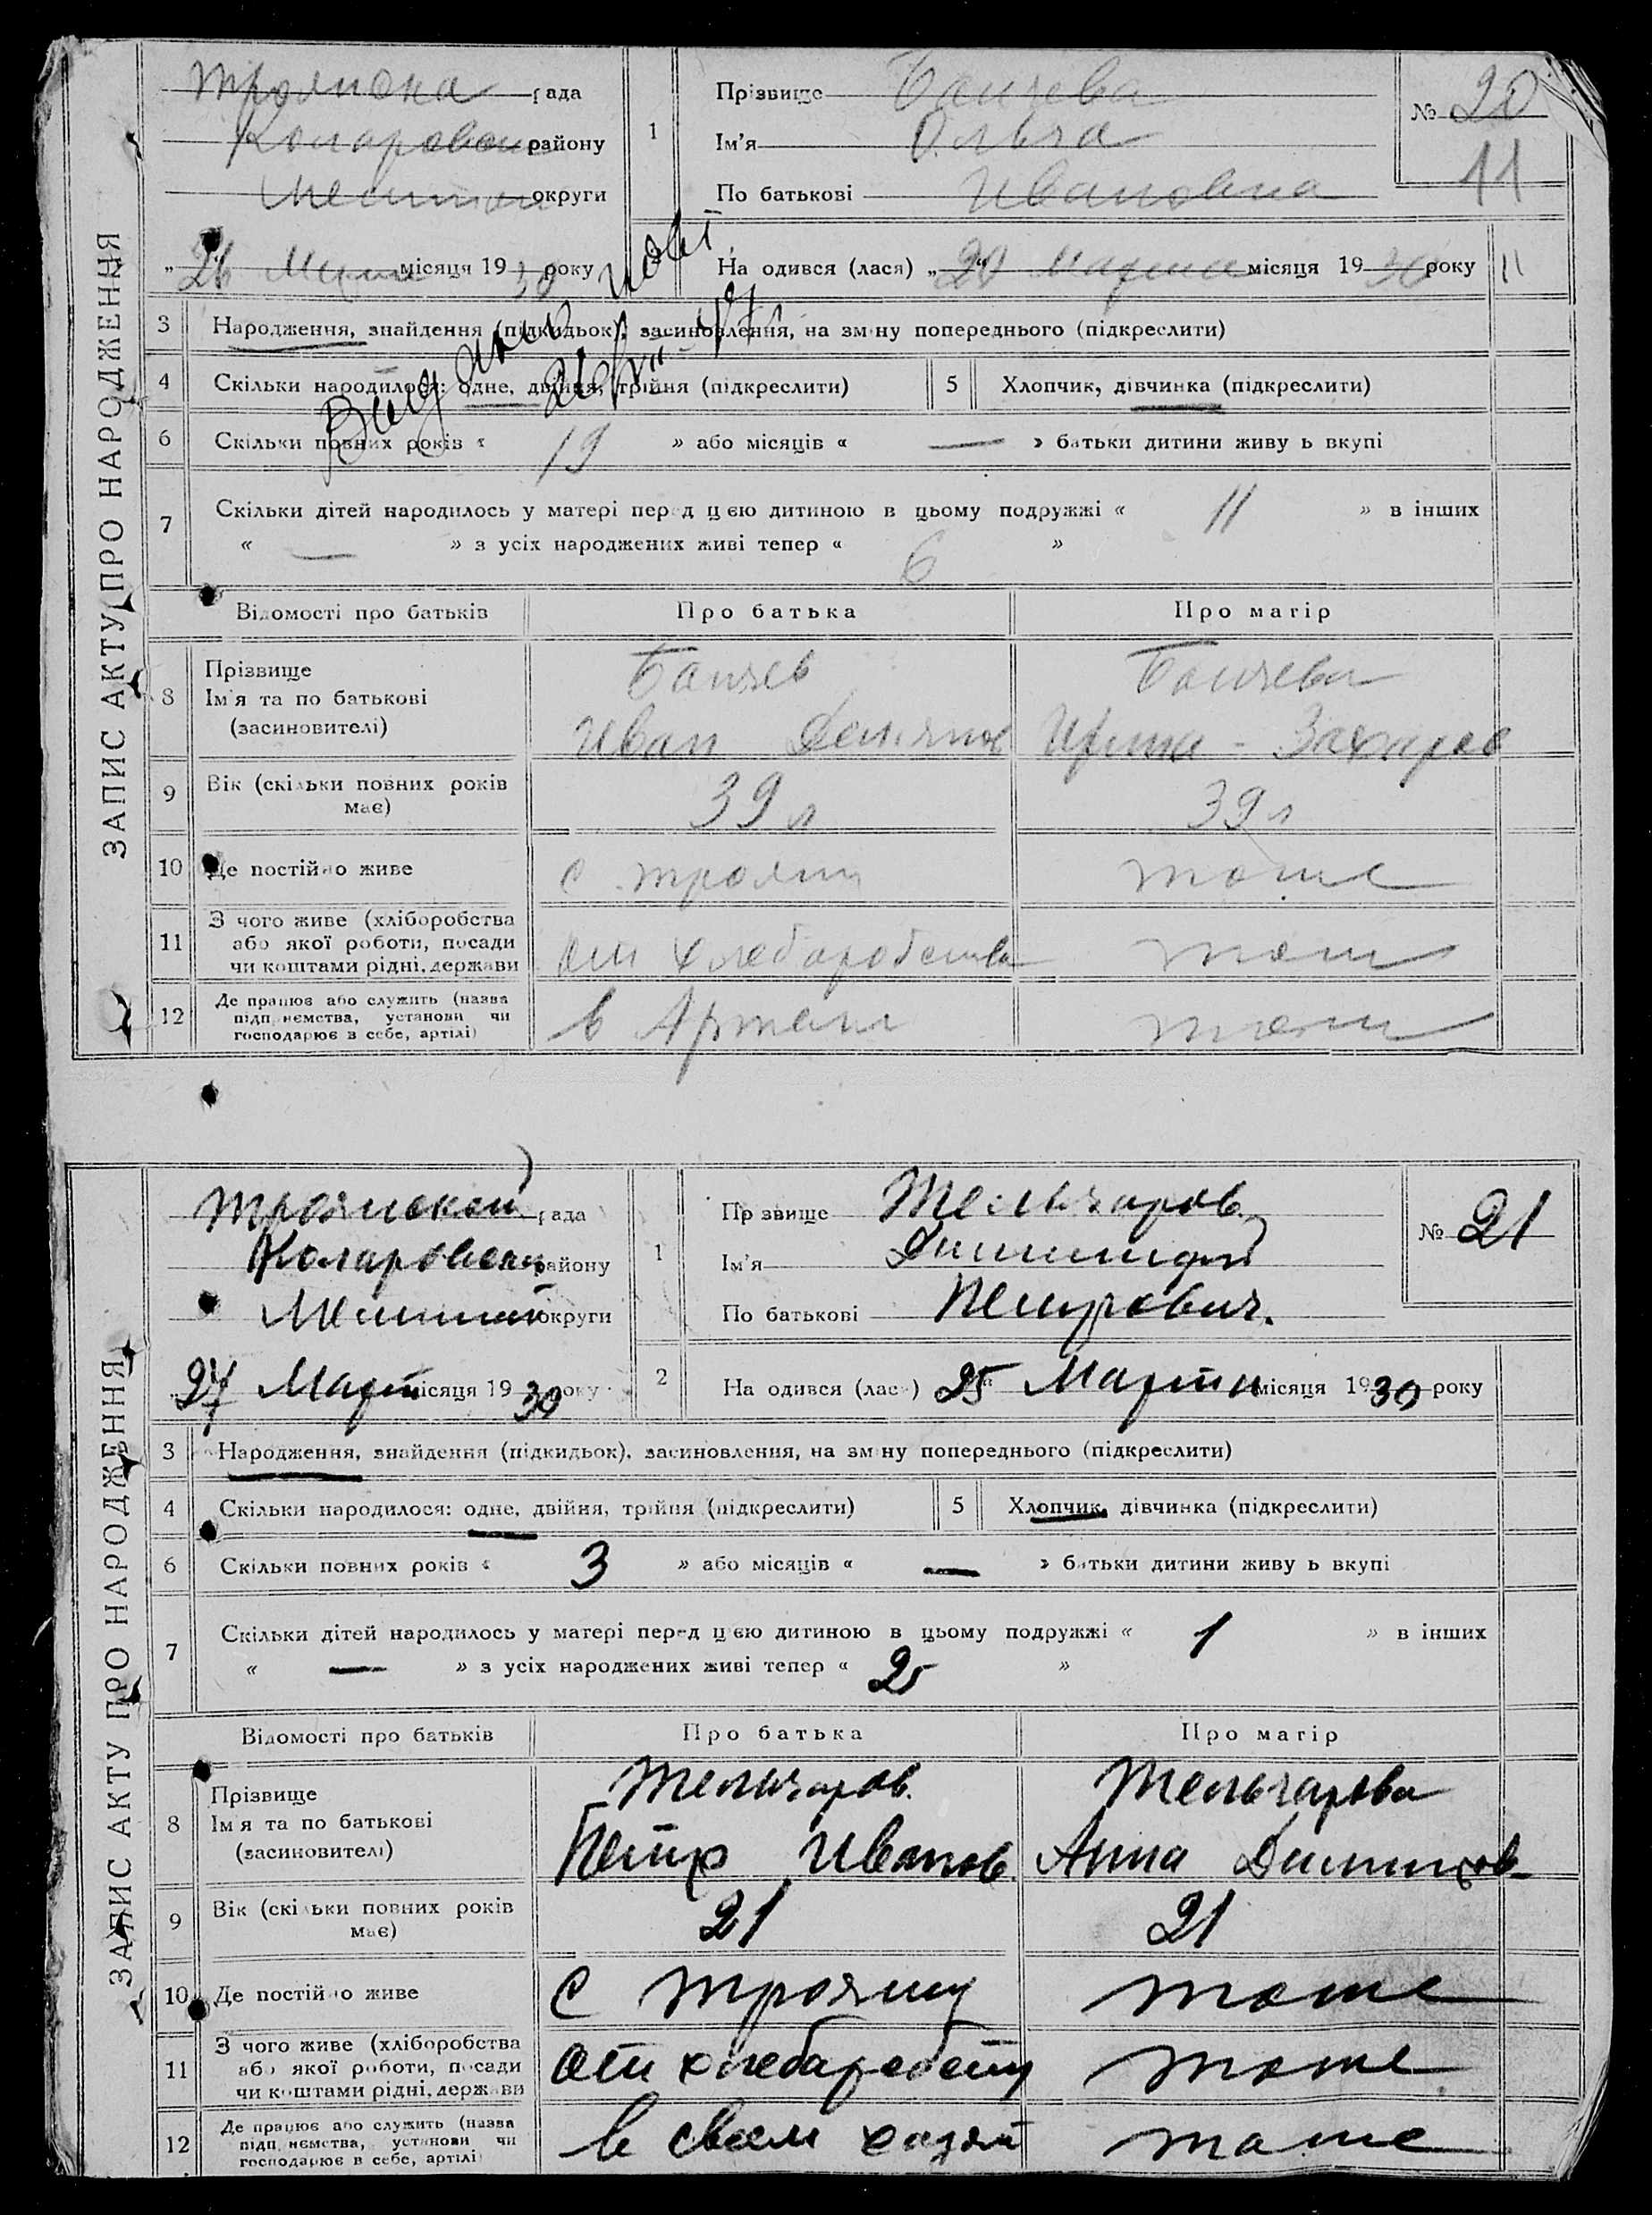 ЗАПИС АКТУ ПРО НАРОДЖЕННЯ
Троянска рада
району
округи
1
Прізвище Банчева
Ім'я Ольга
По батькові Ивановна
№ 20
11
„26 Марта місяця 1930 року
На одився (лася) „20“ Марта місяця 1930 року
11
3 Народження, знайдення (підкидьок), засиновлення, на зміну попереднього (підкреслити)
4 Скільки народилося: одне, двійня, трійня (підкреслити)
5 Хлопчик, дівчинка (підкреслити)
6 Скільки повних років « 19 » або місяців « — » батьки дитини живу ь вкупі
7 Скільки дітей народилось у матері перед цією дитиною в цьому подружжі « 11 » в інших
« — » з усіх народжених живі тепер « 6 »
Відомості про батьків Про батька Про матір
8 Прізвище
Ім'я та по батькові
(засиновителі)
Банчев
Иван
Банчева
Ирина - Захаров
9 Вік (скільки повних років
має)
39 л
39 л
10 Де постійно живе
с. Троян
тоже
11 З чого живе (хліборобства
або якої роботи, посади
чи коштами рідні, держави
от хлебаробства
тож
12 Де працює або служить (назва
підприємства, установи чи
господарює в себе, артілі)
в Артели
тож
ЗАПИС АКТУ ПРО НАРОДЖЕННЯ
Троянской рада
Коларовски району
округи
1
Пр звище Тельчаров
Ім'я Димитрий
По батькові Петрович.
№ 21
„27 Март місяця 1930 року
2 На одився (лася) 25“ Марта місяця 1930 року
3 Народження, знайдення (підкидьок), засиновлення, на зміну попереднього (підкреслити)
4 Скільки народилося: одне, двійня, трійня (підкреслити)
5 Хлопчик, дівчинка (підкреслити)
6 Скільки повних років « 3 » або місяців « — » батьки дитини живу ь вкупі
7 Скільки дітей народилось у матері перед цією дитиною в цьому подружжі « 1 » в інших
« — » з усіх народжених живі тепер « 2 »
Відомості про батьків Про батька Про матір
8 Прізвище
Ім'я та по батькові
(засиновителі)
Тельчаров.
Петр Иванов.
Тельчарова
Анна Димитров
9 Вік (скільки повних років
має)
21
21
10 Де постійно живе
с Трояну
тоже
11 З чого живе (хліборобства
або якої роботи, посади
чи коштами рідні, держави
от хлебаробству
тоже
12 Де працює або служить (назва
підприємства, установи чи
господарює в себе, артілі)
в своем хозяй
тоже